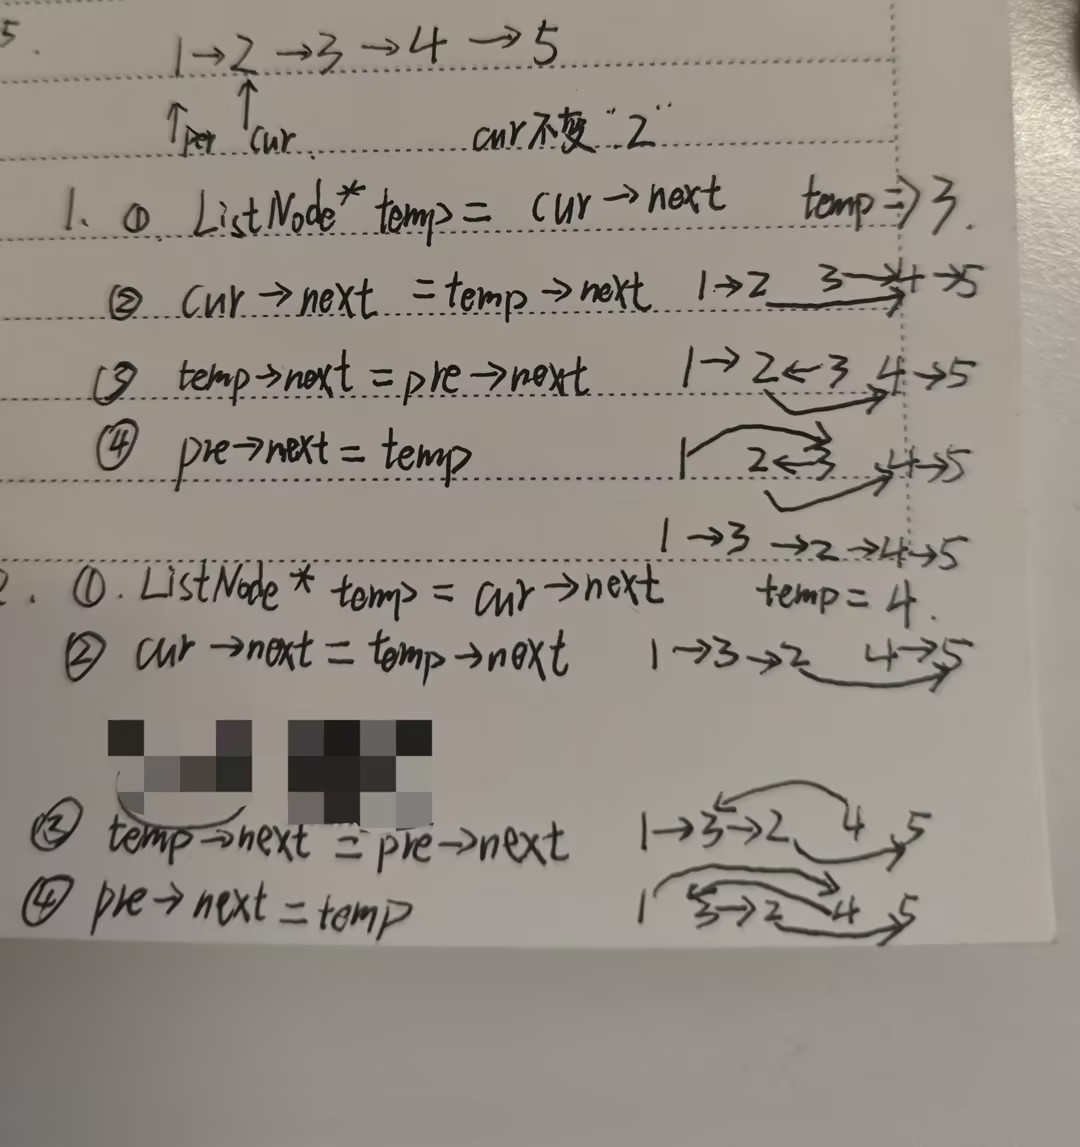 5.
1→2→3→4→5
↑per ↑cur. cur不变"2"
1. ①. ListNode* temp = cur→next temp⇒3.
② cur→next = temp→next 1→2 3→4→5
③ temp→next = pre→next 1→2←3 4→5
④ pre→next = temp 1 2←3 4→5
1→3→2→4→5
2. ①. ListNode* temp = cur→next temp=4.
② cur→next = temp→next 1→3→2 4→5
③ temp→next = pre→next 1→3→2 4 5
④ pre→next = temp 1 3→2 4 5